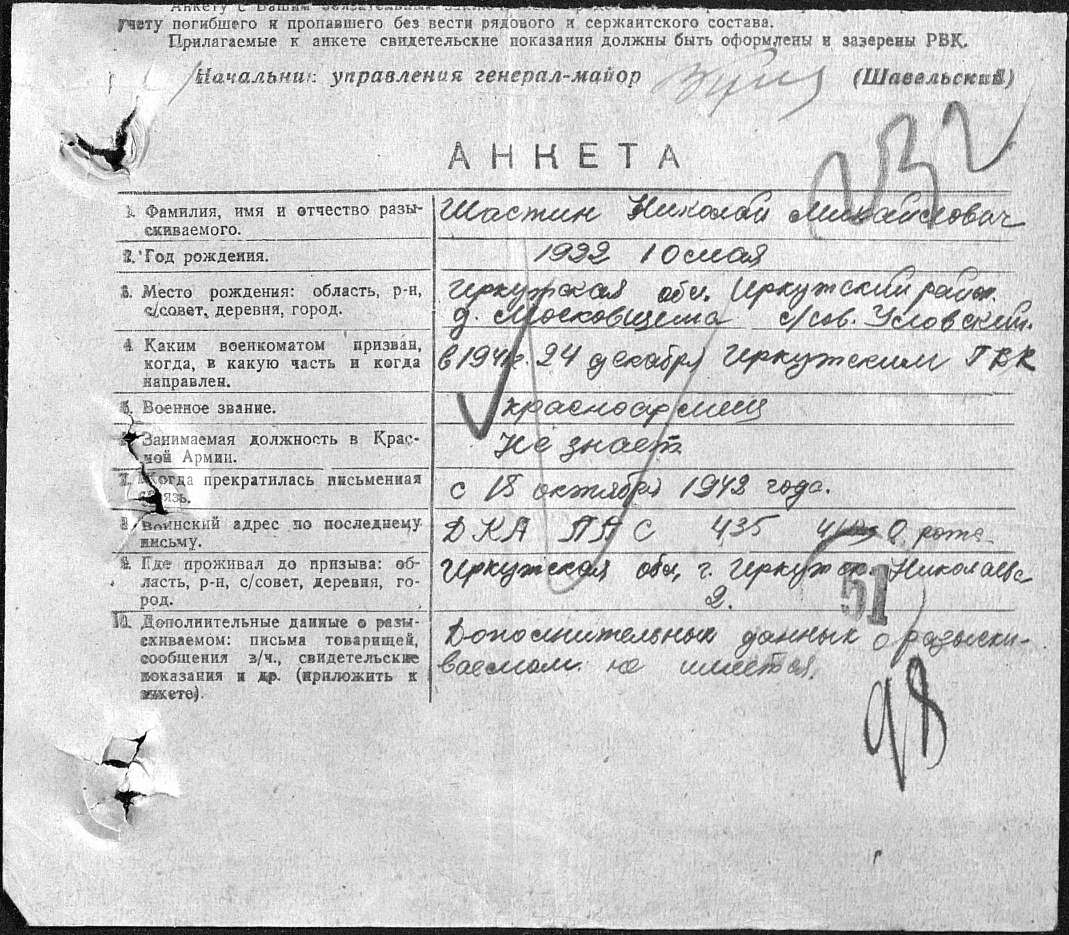 учету погибшего и пропавшего без вести рядового и сержантского состава.
Прилагаемые к анкете свидетельские показания должны быть оформлены и заверены РВК.
Начальник управления генерал-майор (Шавельский)
232
АНКЕТА
1. Фамилия, имя и отчество разы-
скиваемого.
Шастин Николай Михайлович
2. Год рождения.
1922 10 мая
3. Место рождения: область, р-н,
с/совет, деревня, город.
Иркутская обл. Иркутский район.
д. Московщина с/сов. Условский.
4. Каким военкоматом призван,
когда, в какую часть и когда
направлен.
в 1941г. 24 декабря Иркутским ГВК
5. Военное звание.
красноармеец
6. Занимаемая должность в Крас-
ной Армии.
Не знает
7. Когда прекратилась письменная
связь.
с 18 октября 1942 года.
8. Воинский адрес по последнему
письму.
ДКА ППС 435 рота
9. Где проживал до призыва: об-
ласть, р-н, с/совет, деревня, го-
род.
Иркутская обл, г. Иркутск
2.
51
10. Дополнительные данные о разы-
скиваемом: письма товарищей,
сообщения в/ч., свидетельские
показания и др. (приложить к
анкете).
Дополнительных данных о разыски-
ваемом не имеется.
98